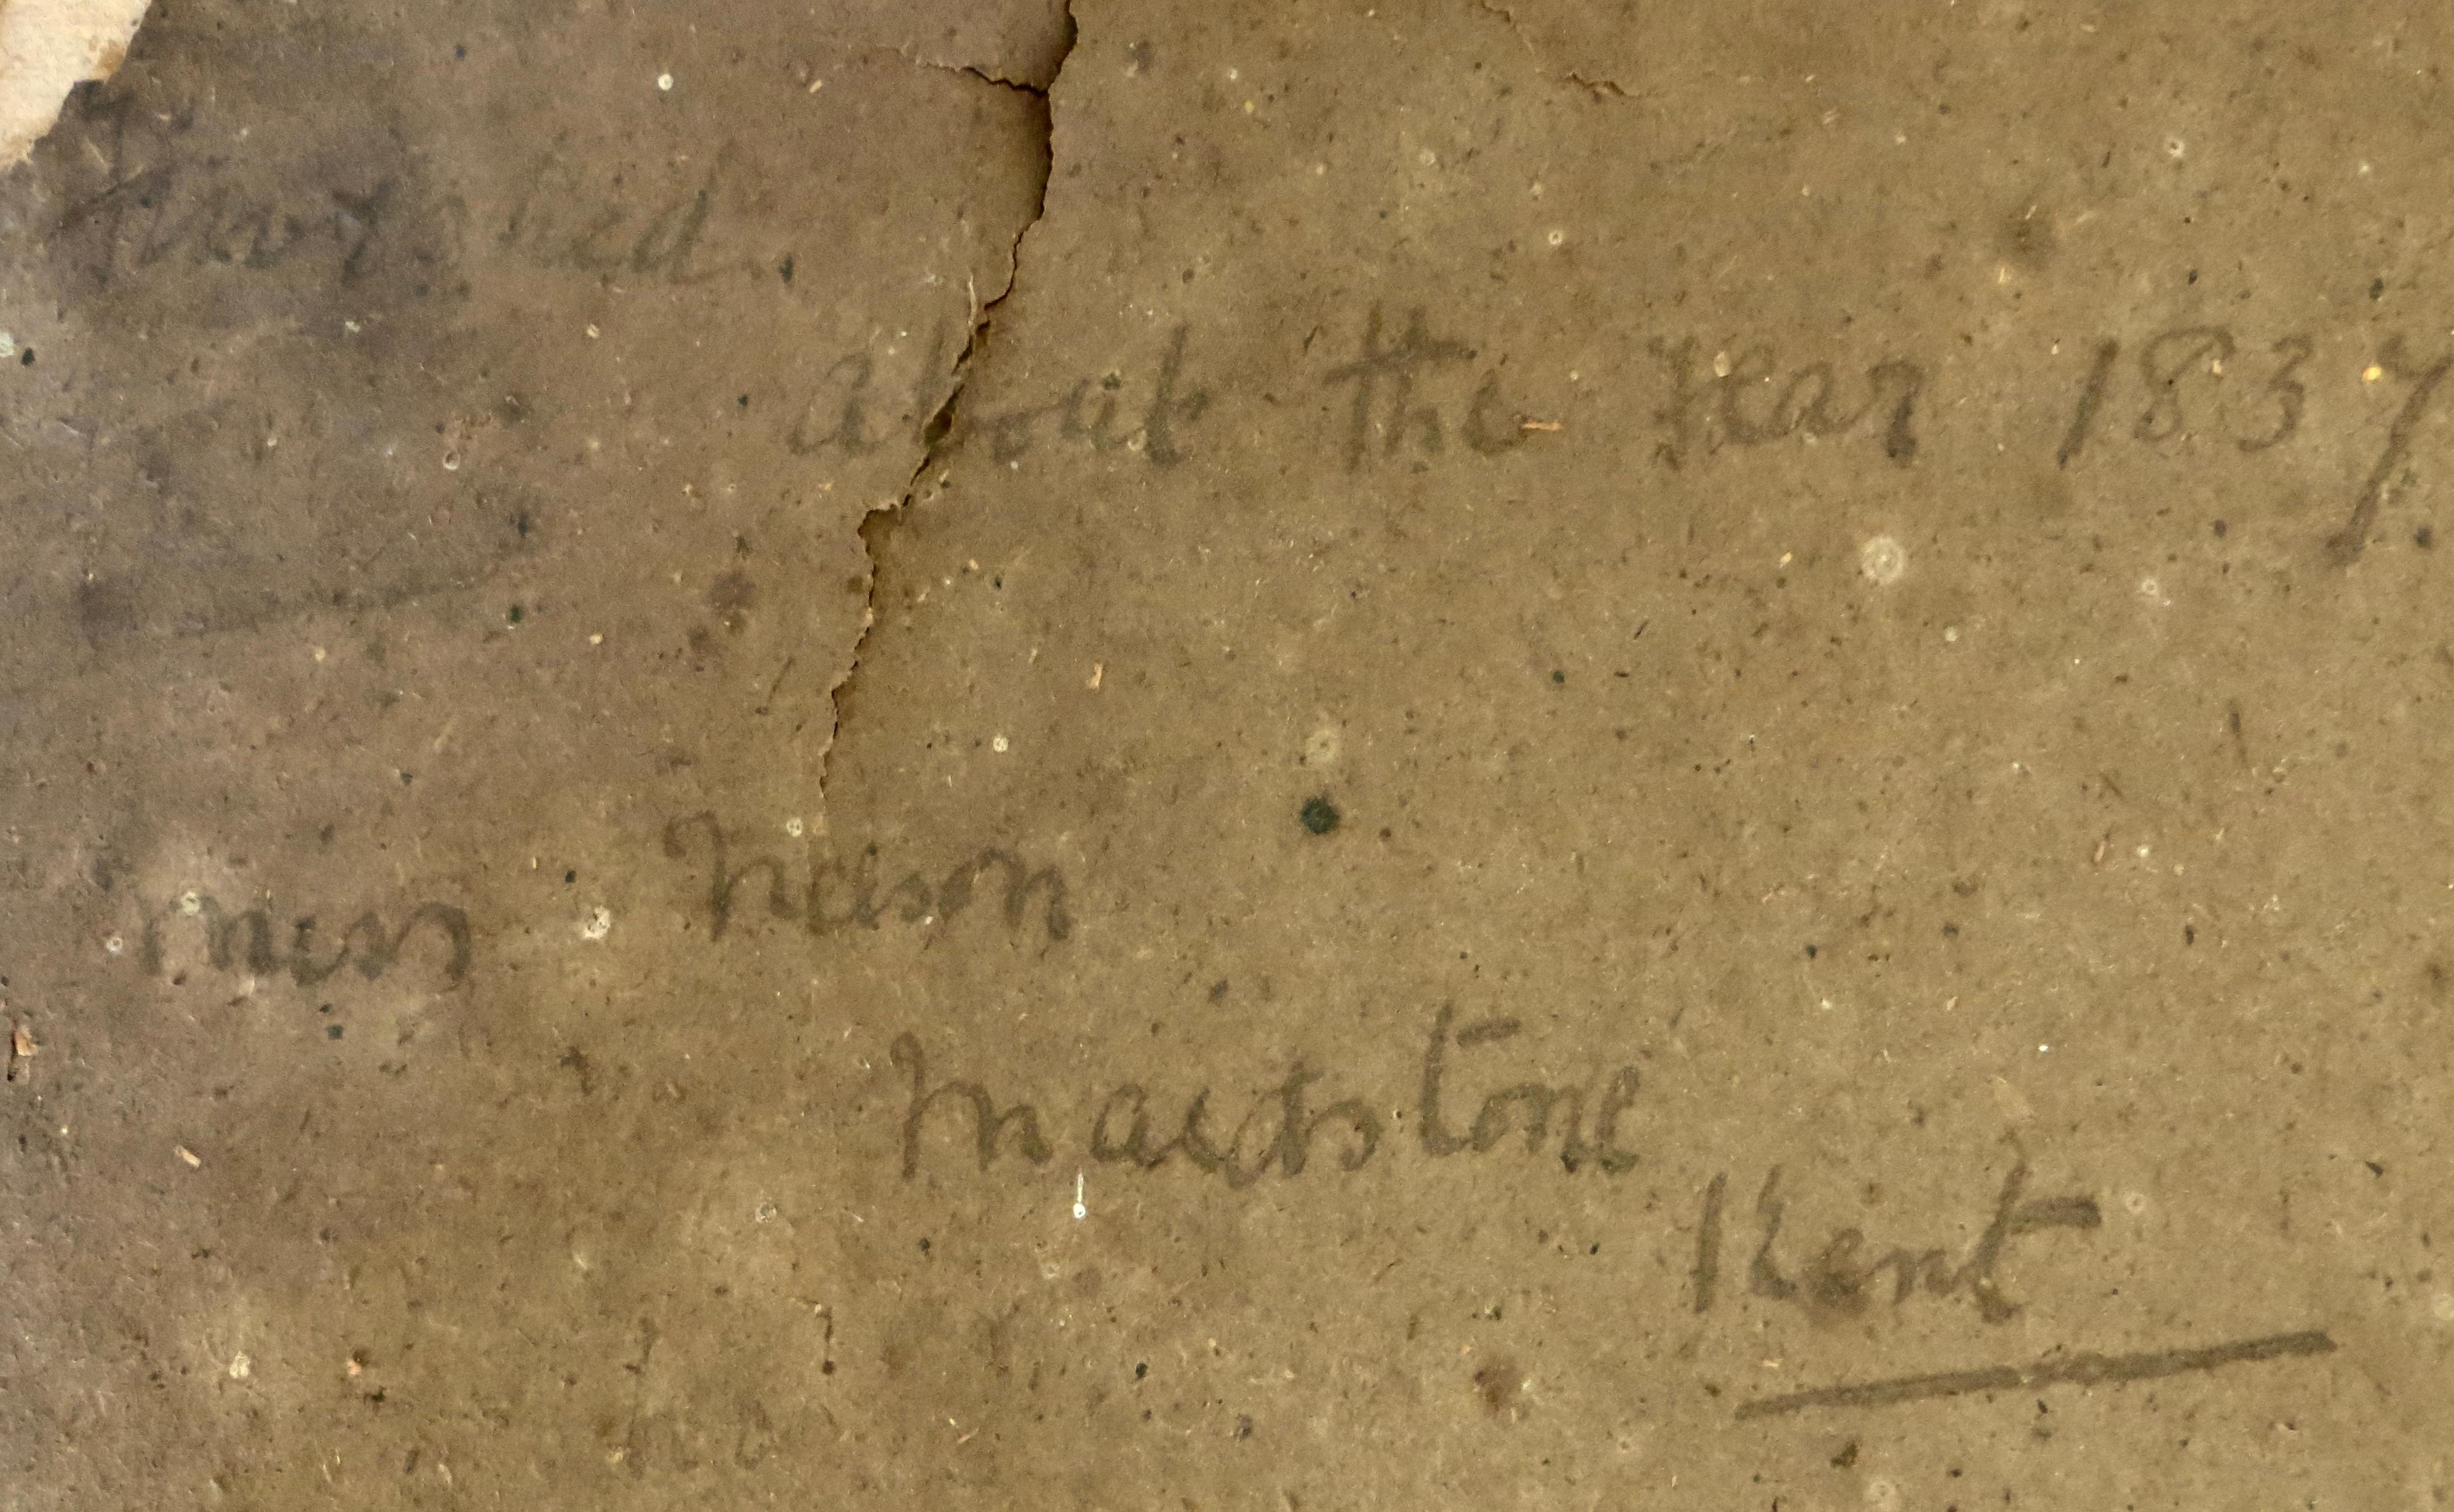 about the year 1837
miss nason
maidstone
Kent